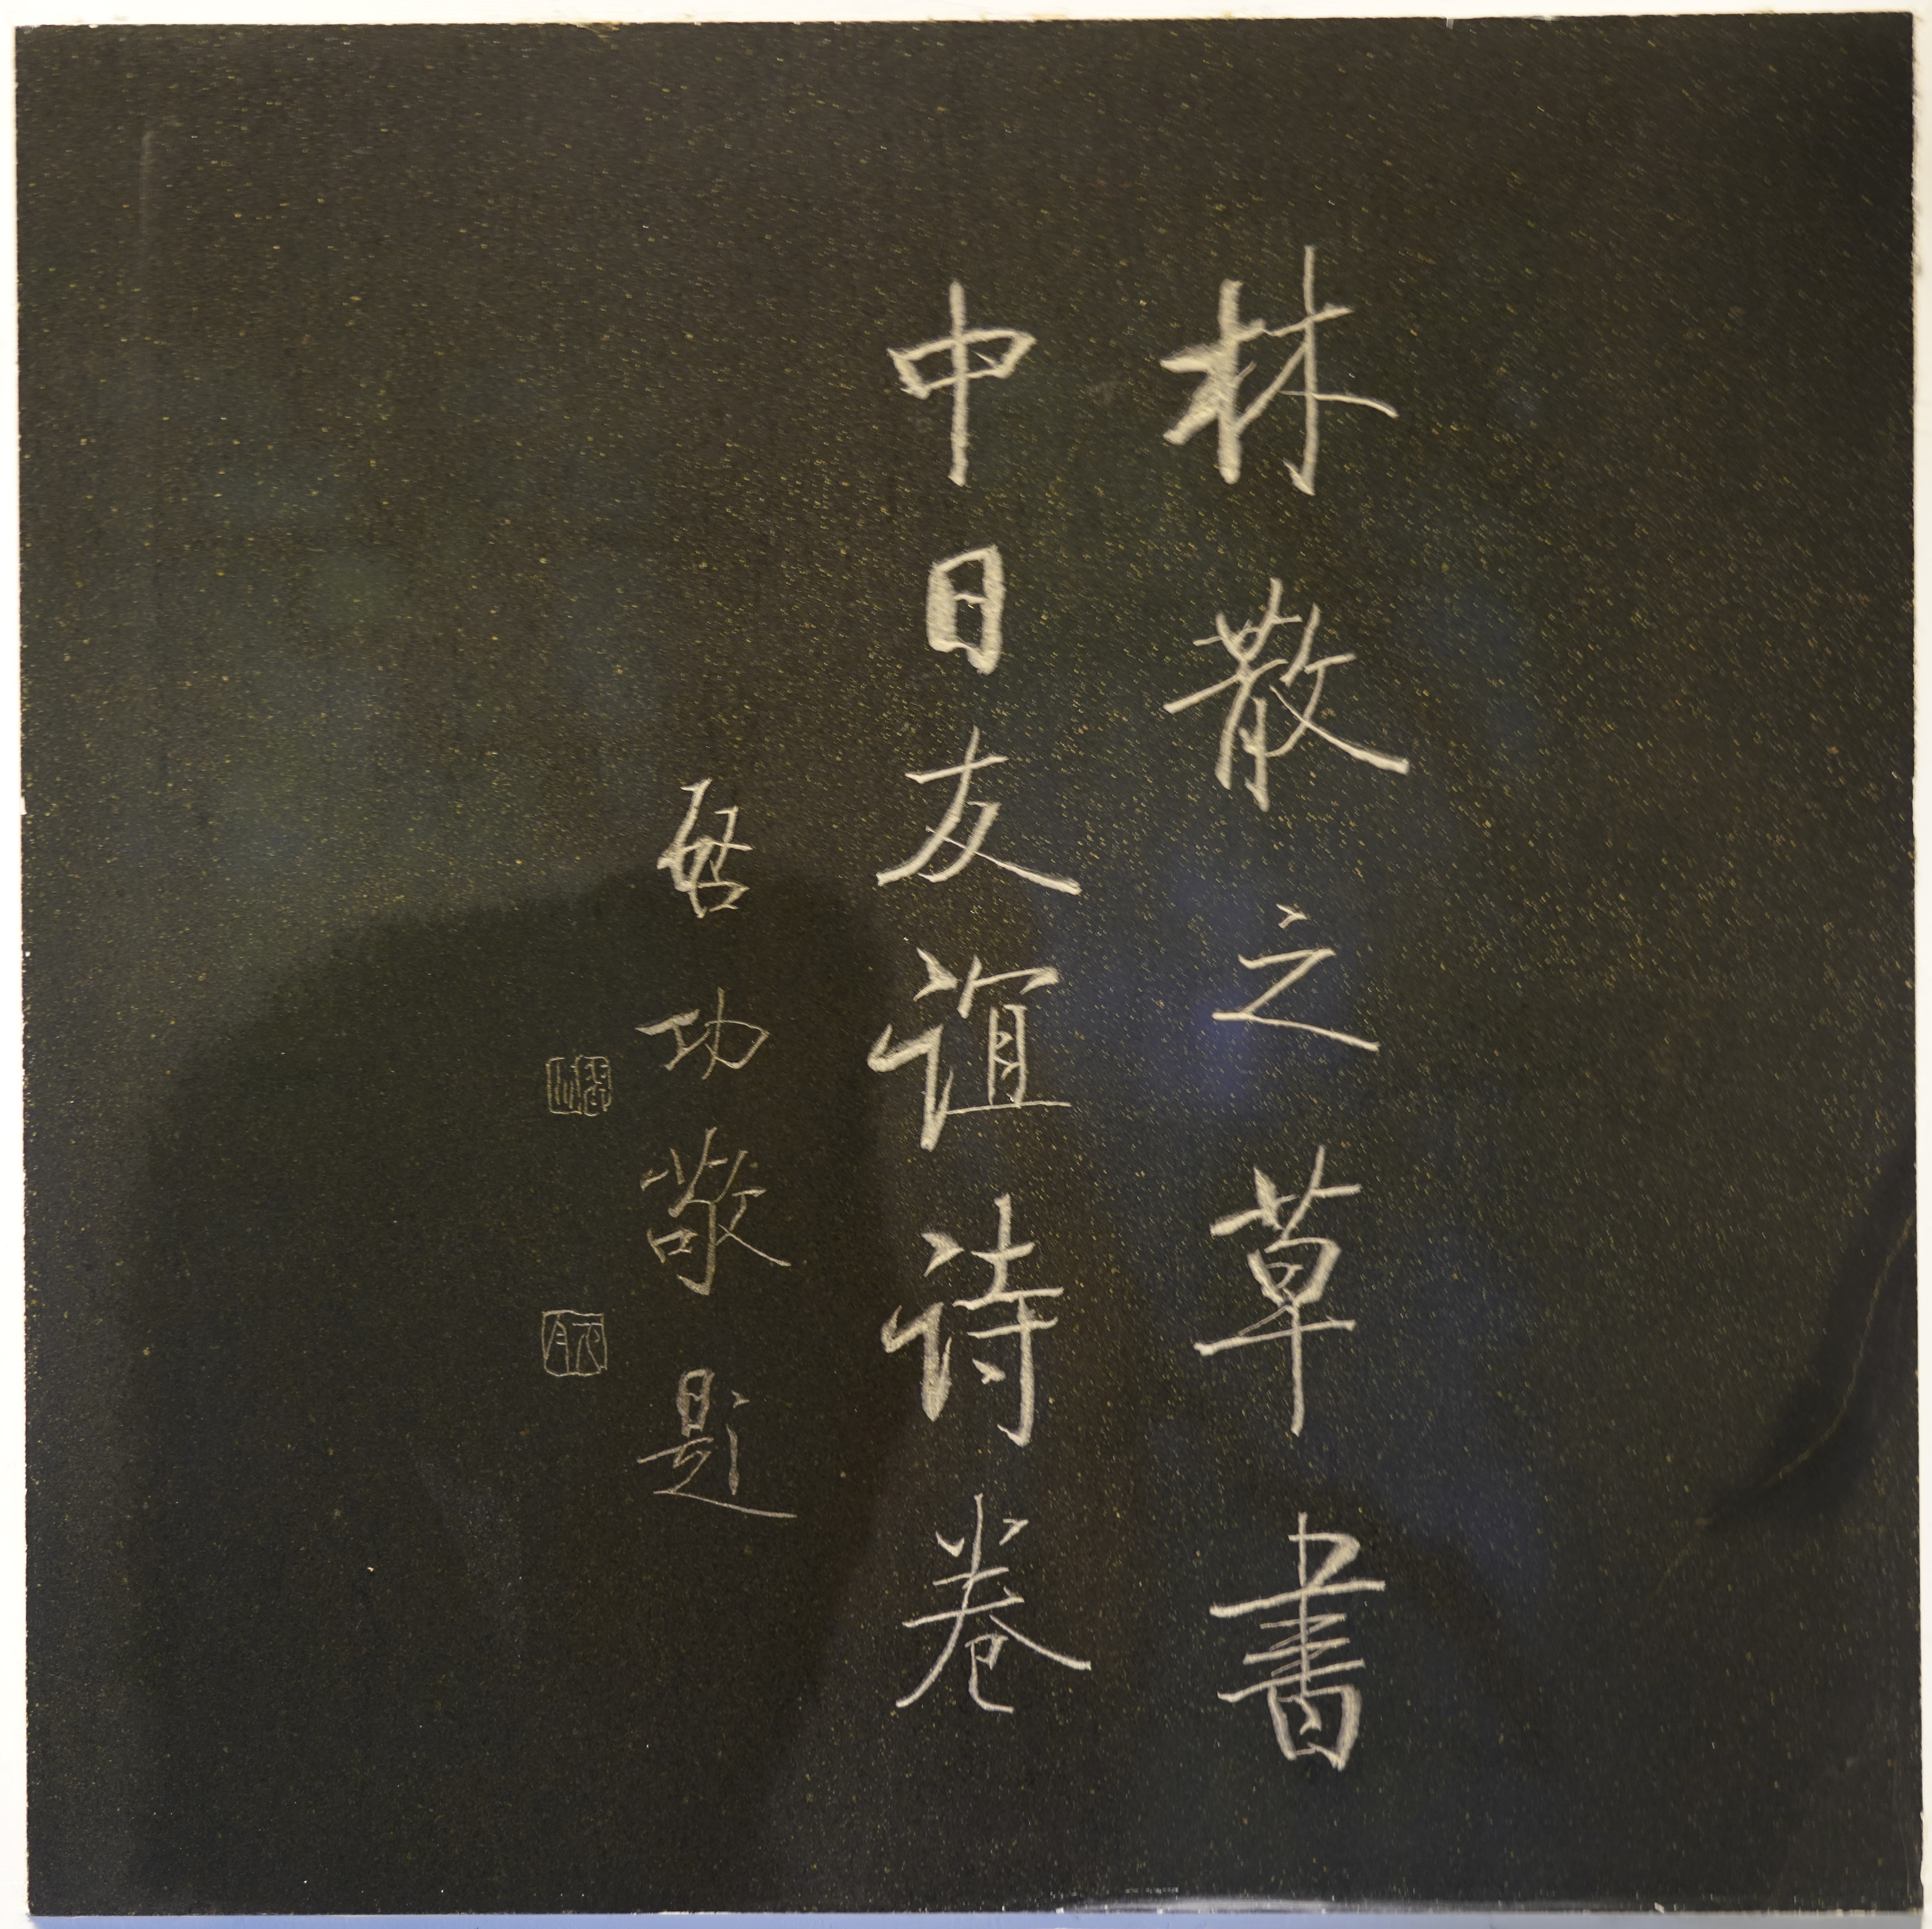 林散之草書
中日友谊诗卷
启功敬题